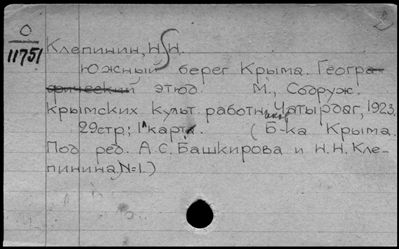 О
11751
Клепинин, Н.Н.
Южный берег Крыма. Геогра-
фический этюд. М., Содруж.
крымских культ. работников Чатырдаг, 1923.
29стр; 1 карта. (Б-ка Крыма.
Под ред. А.С. Башкирова и Н.Н. Кле-
пинина, N=1.)